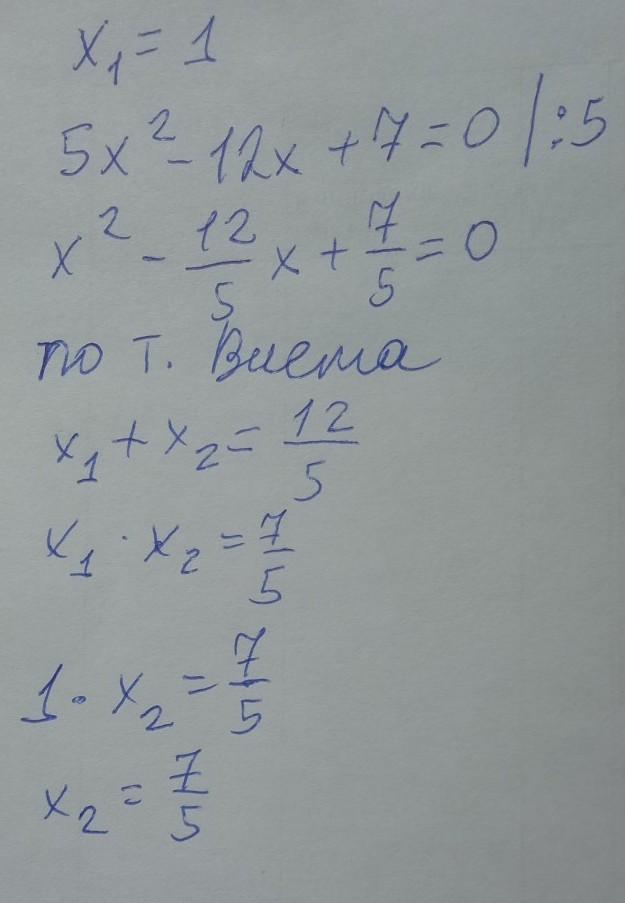 x₁ = 1
5x² - 12x + 7 = 0 | :5
x² - 12/5 x + 7/5 = 0
по т. Виета
x₁ + x₂ = 12/5
x₁ · x₂ = 7/5
1 · x₂ = 7/5
x₂ = 7/5